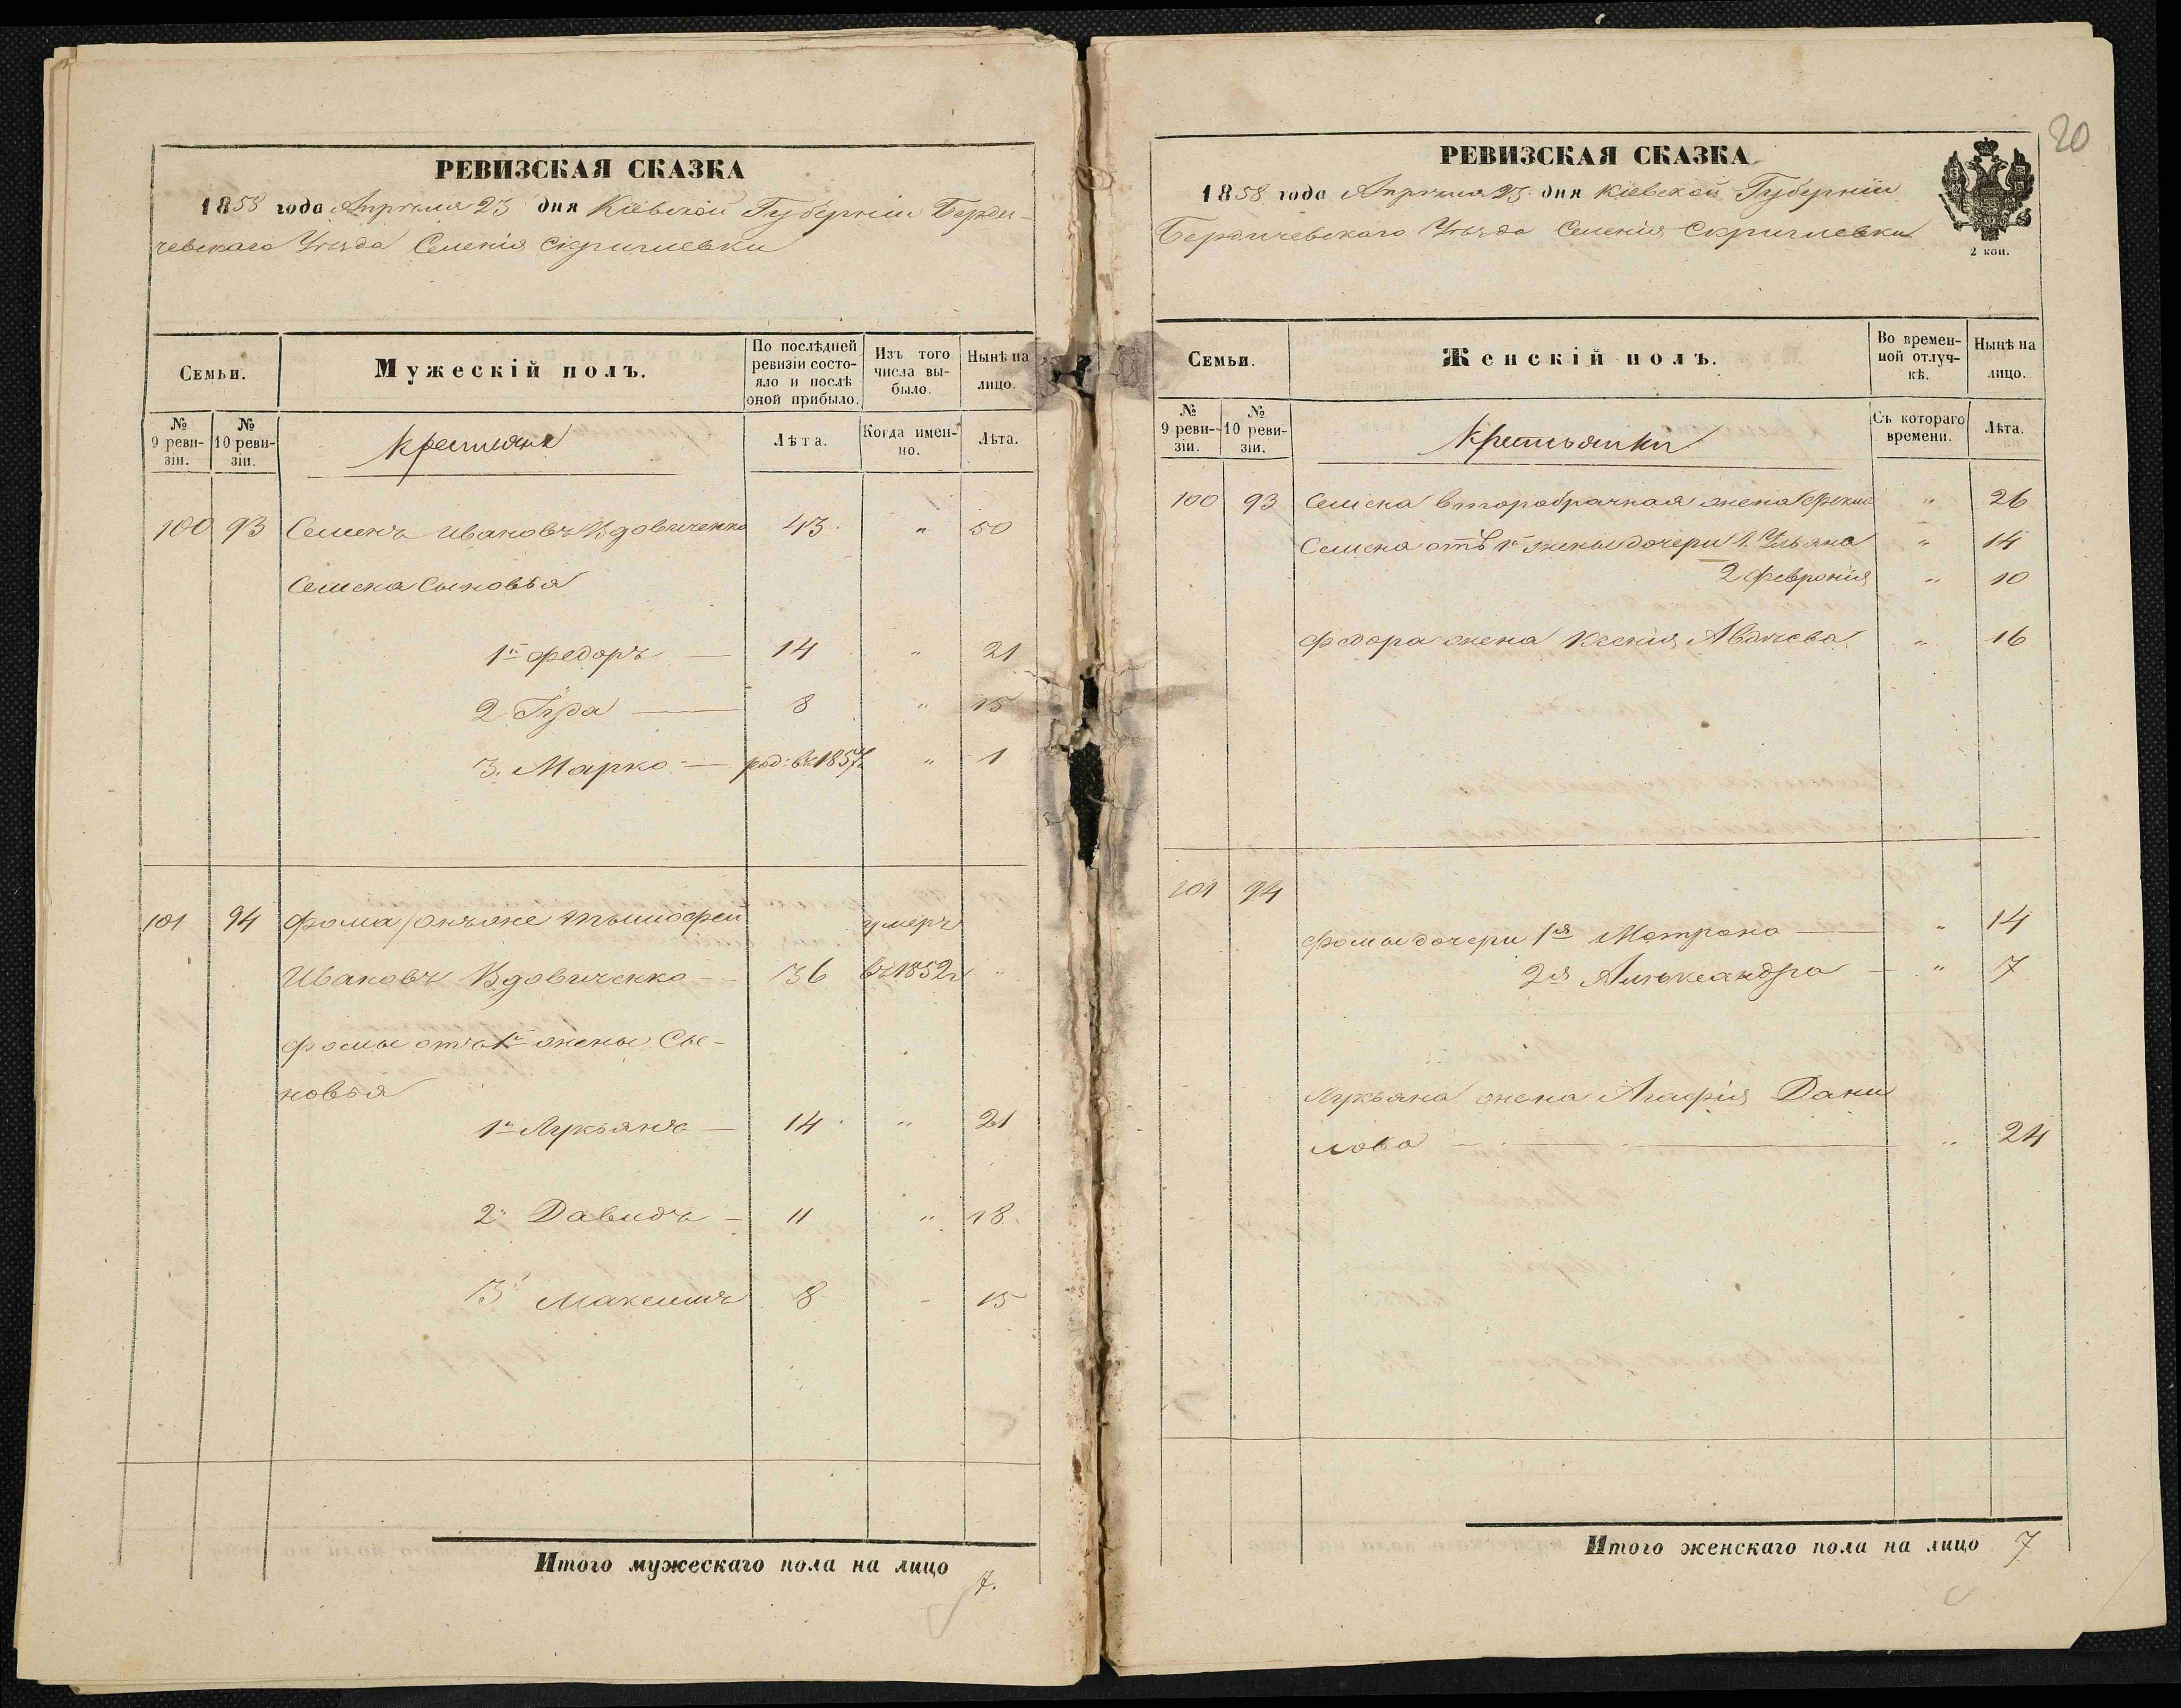 РЕВИЗСКАЯ СКАЗКА
1858 года Апреля 23 дня Кіевской Губерніи Берди-
чевскаго Уезда Селенія Скригилевки
Семьи.
Мужескій полъ.
По послѣдней ревизіи состо-яло и послѣ оной прибыло.
Изъ того числа вы-было.
Нынѣ на лицо.
№ 9 реви-зіи.
№ 10 реви-зіи.
Крестьяне
Лѣта.
Когда имен-но.
Лѣта.
100 93 Семенъ Ивановъ Вдовиченко 43 " 50
Семена Сыновья
1й Федоръ — 14 " 21
2 Гуда — 8 " 15
3. Марко — род: въ 1857г. " 1
101 94 Фома /онъ же Тымофей умеръ
Ивановъ Вдовиченко — 36 въ 1852г "
Фомы отъ 1й жены Сы-
новья
1й Лукьянъ — 14 " 21
2й Давидъ — 11 " 18
3й Максимъ 8 " 15
Итого мужескаго пола на лицо 7.
20
РЕВИЗСКАЯ СКАЗКА
1858 года Апреля 23 дня Кіевской Губерніи
Бердичевскаго Уезда Селенія Скригилевки
2 коп.
Семьи.
Женскій полъ.
Во времен-ной отлуч-кѣ.
Нынѣ на лицо.
№ 9 реви-зіи.
№ 10 реви-зіи.
Крестьянки
Съ котораго времени.
Лѣта.
100 93 Семена второбрачная жена " 26
Семена отъ 1й жены дочери 1. Ульяна " 14
2 Февронія " 10
Федора жена Ксенія " 16
101 94
Фомы дочери 1я Матрона — " 14
2я Александра — " 7
Лукьяна жена Агафія Дани
лова — " 24
Итого женскаго пола на лицо 7